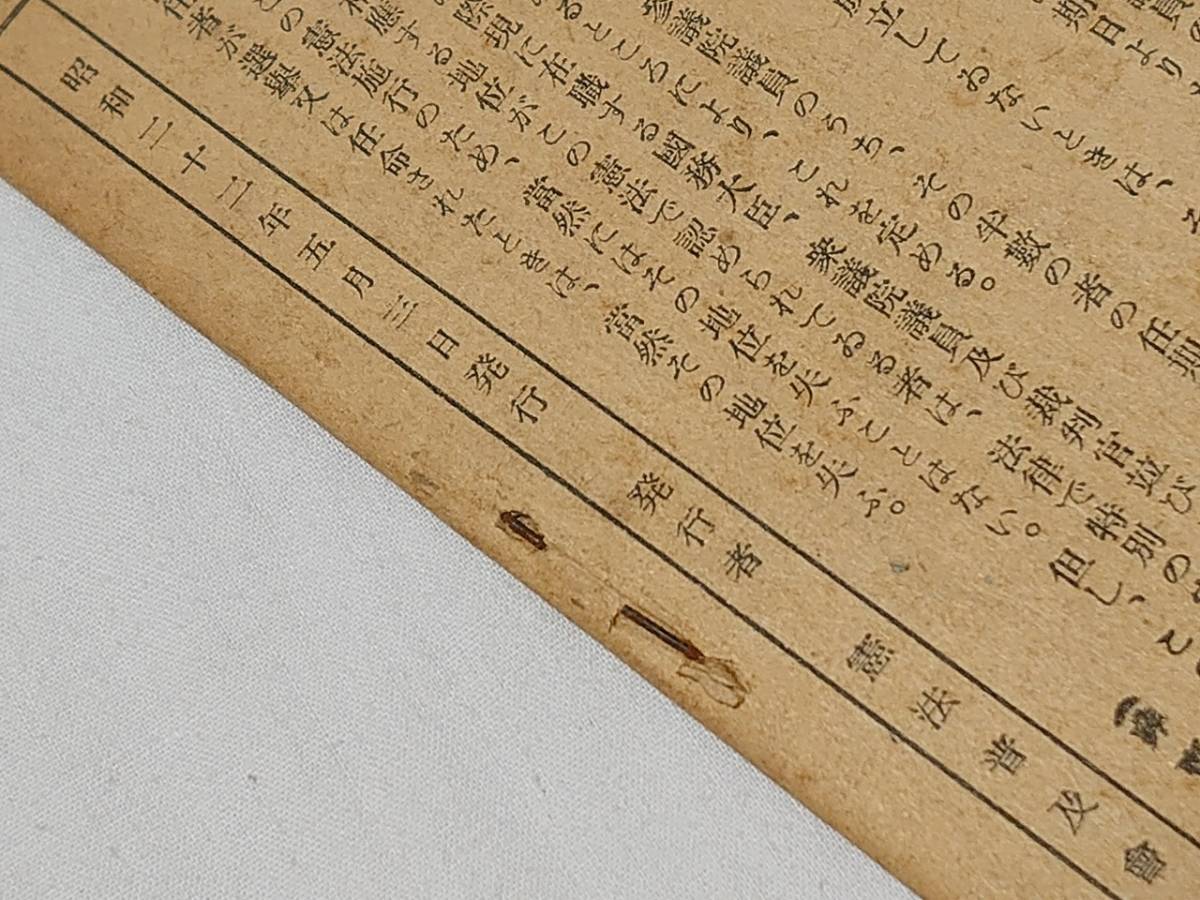 期日より
立してゐないときは、
參議院議員のうち、その半數の者の任期
るところにより、これを定める。
際現に在職する國務大臣、衆議院議員及び裁判官並び
應する地位がこの憲法で認められてゐる者は、法律で特別の
憲法施行のため、當然にはその地位を失ふことはない。但し、こ
任者が選擧又は任命されたときは、當然その地位を失ふ。
昭和二十二年五月三日発行 発行者 憲法普及會